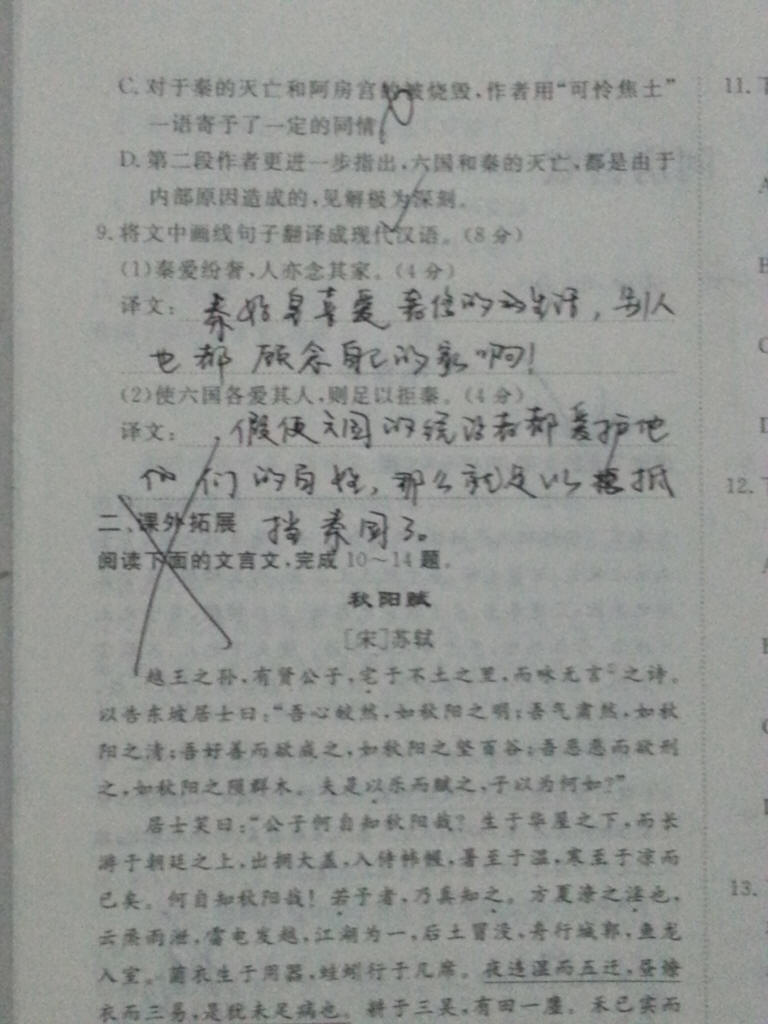 C. 对于秦的灭亡和阿房宫的被烧毁,作者用“可怜焦土”
一语寄予了一定的同情。
D. 第二段作者更进一步指出,六国和秦的灭亡,都是由于
内部原因造成的,见解极为深刻。
9. 将文中画线句子翻译成现代汉语。(8分)
(1)秦爱纷奢,人亦念其家。(4分)
译文: 秦始皇喜爱奢侈的生活,别人
也都顾念自己的家啊!
(2)使六国各爱其人,则足以拒秦。(4分)
译文: ,假使六国的统治者都爱护他
他们的百姓,那么就足以抵
挡秦国了。
二、课外拓展
阅读下面的文言文,完成10~14题。
秋阳赋
[宋]苏轼
越王之孙,有贤公子,宅于不土之里,而咏无言①之诗。
以告东坡居士曰:“吾心皎然,如秋阳之明;吾气肃然,如秋
阳之清;吾好善而欲成之,如秋阳之坚百谷;吾恶恶而欲刑
之,如秋阳之陨群木。夫是以乐而赋之,子以为何如?”
居士笑曰:“公子何自知秋阳哉?生于华屋之下,而长
游于朝廷之上,出拥大盖,入侍帏幄,暑至于温,寒至于凉而
已矣。何自知秋阳哉!若予者,乃真知之。方夏潦之淫也,
云烝雨泄,雷电发越,江湖为一,后土冒没,舟行城郭,鱼龙
入室。菌衣生于用器,蛙蚓行于几席。夜违湿而五迁,昼燎
衣而三易,是犹未足病也。耕于三吴,有田一廛。禾已实而
11.
12.
13.